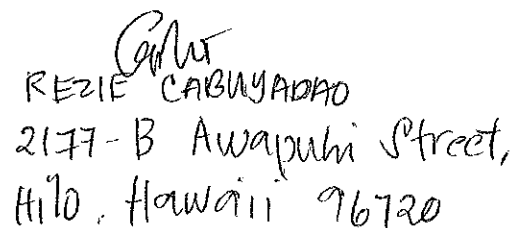 REZIE CABUYADAO
2177-B Awapuhi Street,
Hilo, Hawaii 96720